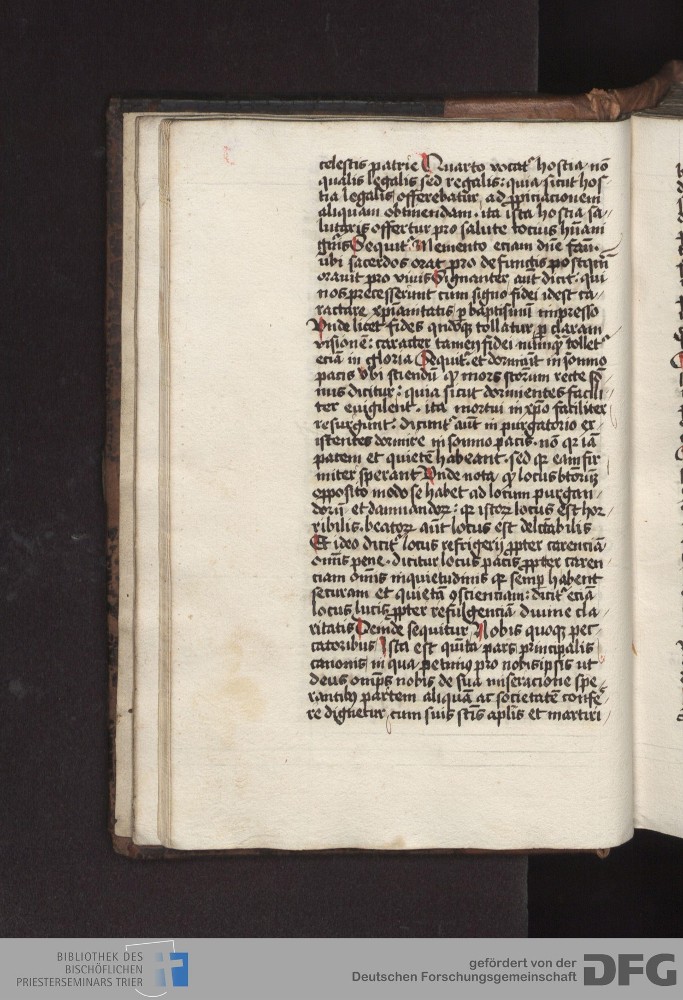 celestis patrie Quarto vocat᷒ hostia nō
qualis legalis sed regalis: quia sicut hos⸗
tia legalis offerebatur ad ꝓpiciacionem
aliquam obtinendam · ita ista hostia sa⸗
lutaris offertur pro salute tocius hūani
gn̄is Sequit᷒ Memento eciam dn̄e fām̄ ·
ubi sacerdos orat pro defunctis postqm̄
oravit pro vivis Signanter aut̄ dicit: qui
nos precesserunt cum signo fidei idest ca⸗
ractare xp̄ianitatis ꝑ baptismū impresso
Unde licet fides qn̄doqꝫ tollatur ꝑ claram
visionē: caracter tamen fidei nūnqꝫ tollet᷒
eciā in gloria Sequit᷒ et dormiūt in somno
pacis Ubi sciendū ꝙ mors sctorum recte so⸗
nus dicitur: quia sicut dormientes facili
ter evigilent · ita mortui in xp̄o faciliter
resurgunt: dicunt᷒ aut̄ in purgatorio ex⸗
istentes dormire in somno pacis · nō qꝛ iā
pacem et quietē habeant · sed qꝛ eam fir
miter sperant Unde nota ꝙ locus btōꝝ
opposito modo se habet ad locum purgan⸗
dorū et damnandoꝝ: qꝛ istoꝝ locus est hor⸗
ribilis · beatoꝝ aut̄ locus est delectabilis
Et ideo dicit᷒ locus refrigerij ꝓpter carenciā
om̄is pene · dicitur locus pacis ꝓpter caren
ciam om̄is inquietudinis qꝛ semꝑ habent
securam et quietā ꝯscienciam: dicit᷒ eciā
locus lucis ꝓpter refulgenciā divine cla⸗
ritatis Deinde sequitur Nobis quoqꝫ pec⸗
catoribus Ista est quīta pars principalis
canonis in qua petimus pro nobisipsis ut
deus om̄ps nobis de sua miseracione spe⸗
rantibꝫ partem aliquā ac societatē confe⸗
re dignetur cum suis sctīs aplīs et martiri⸗
BIBLIOTHEK DES
BISCHÖFLICHEN
PRIESTERSEMINARS TRIER
gefördert von der
Deutschen Forschungsgemeinschaft DFG